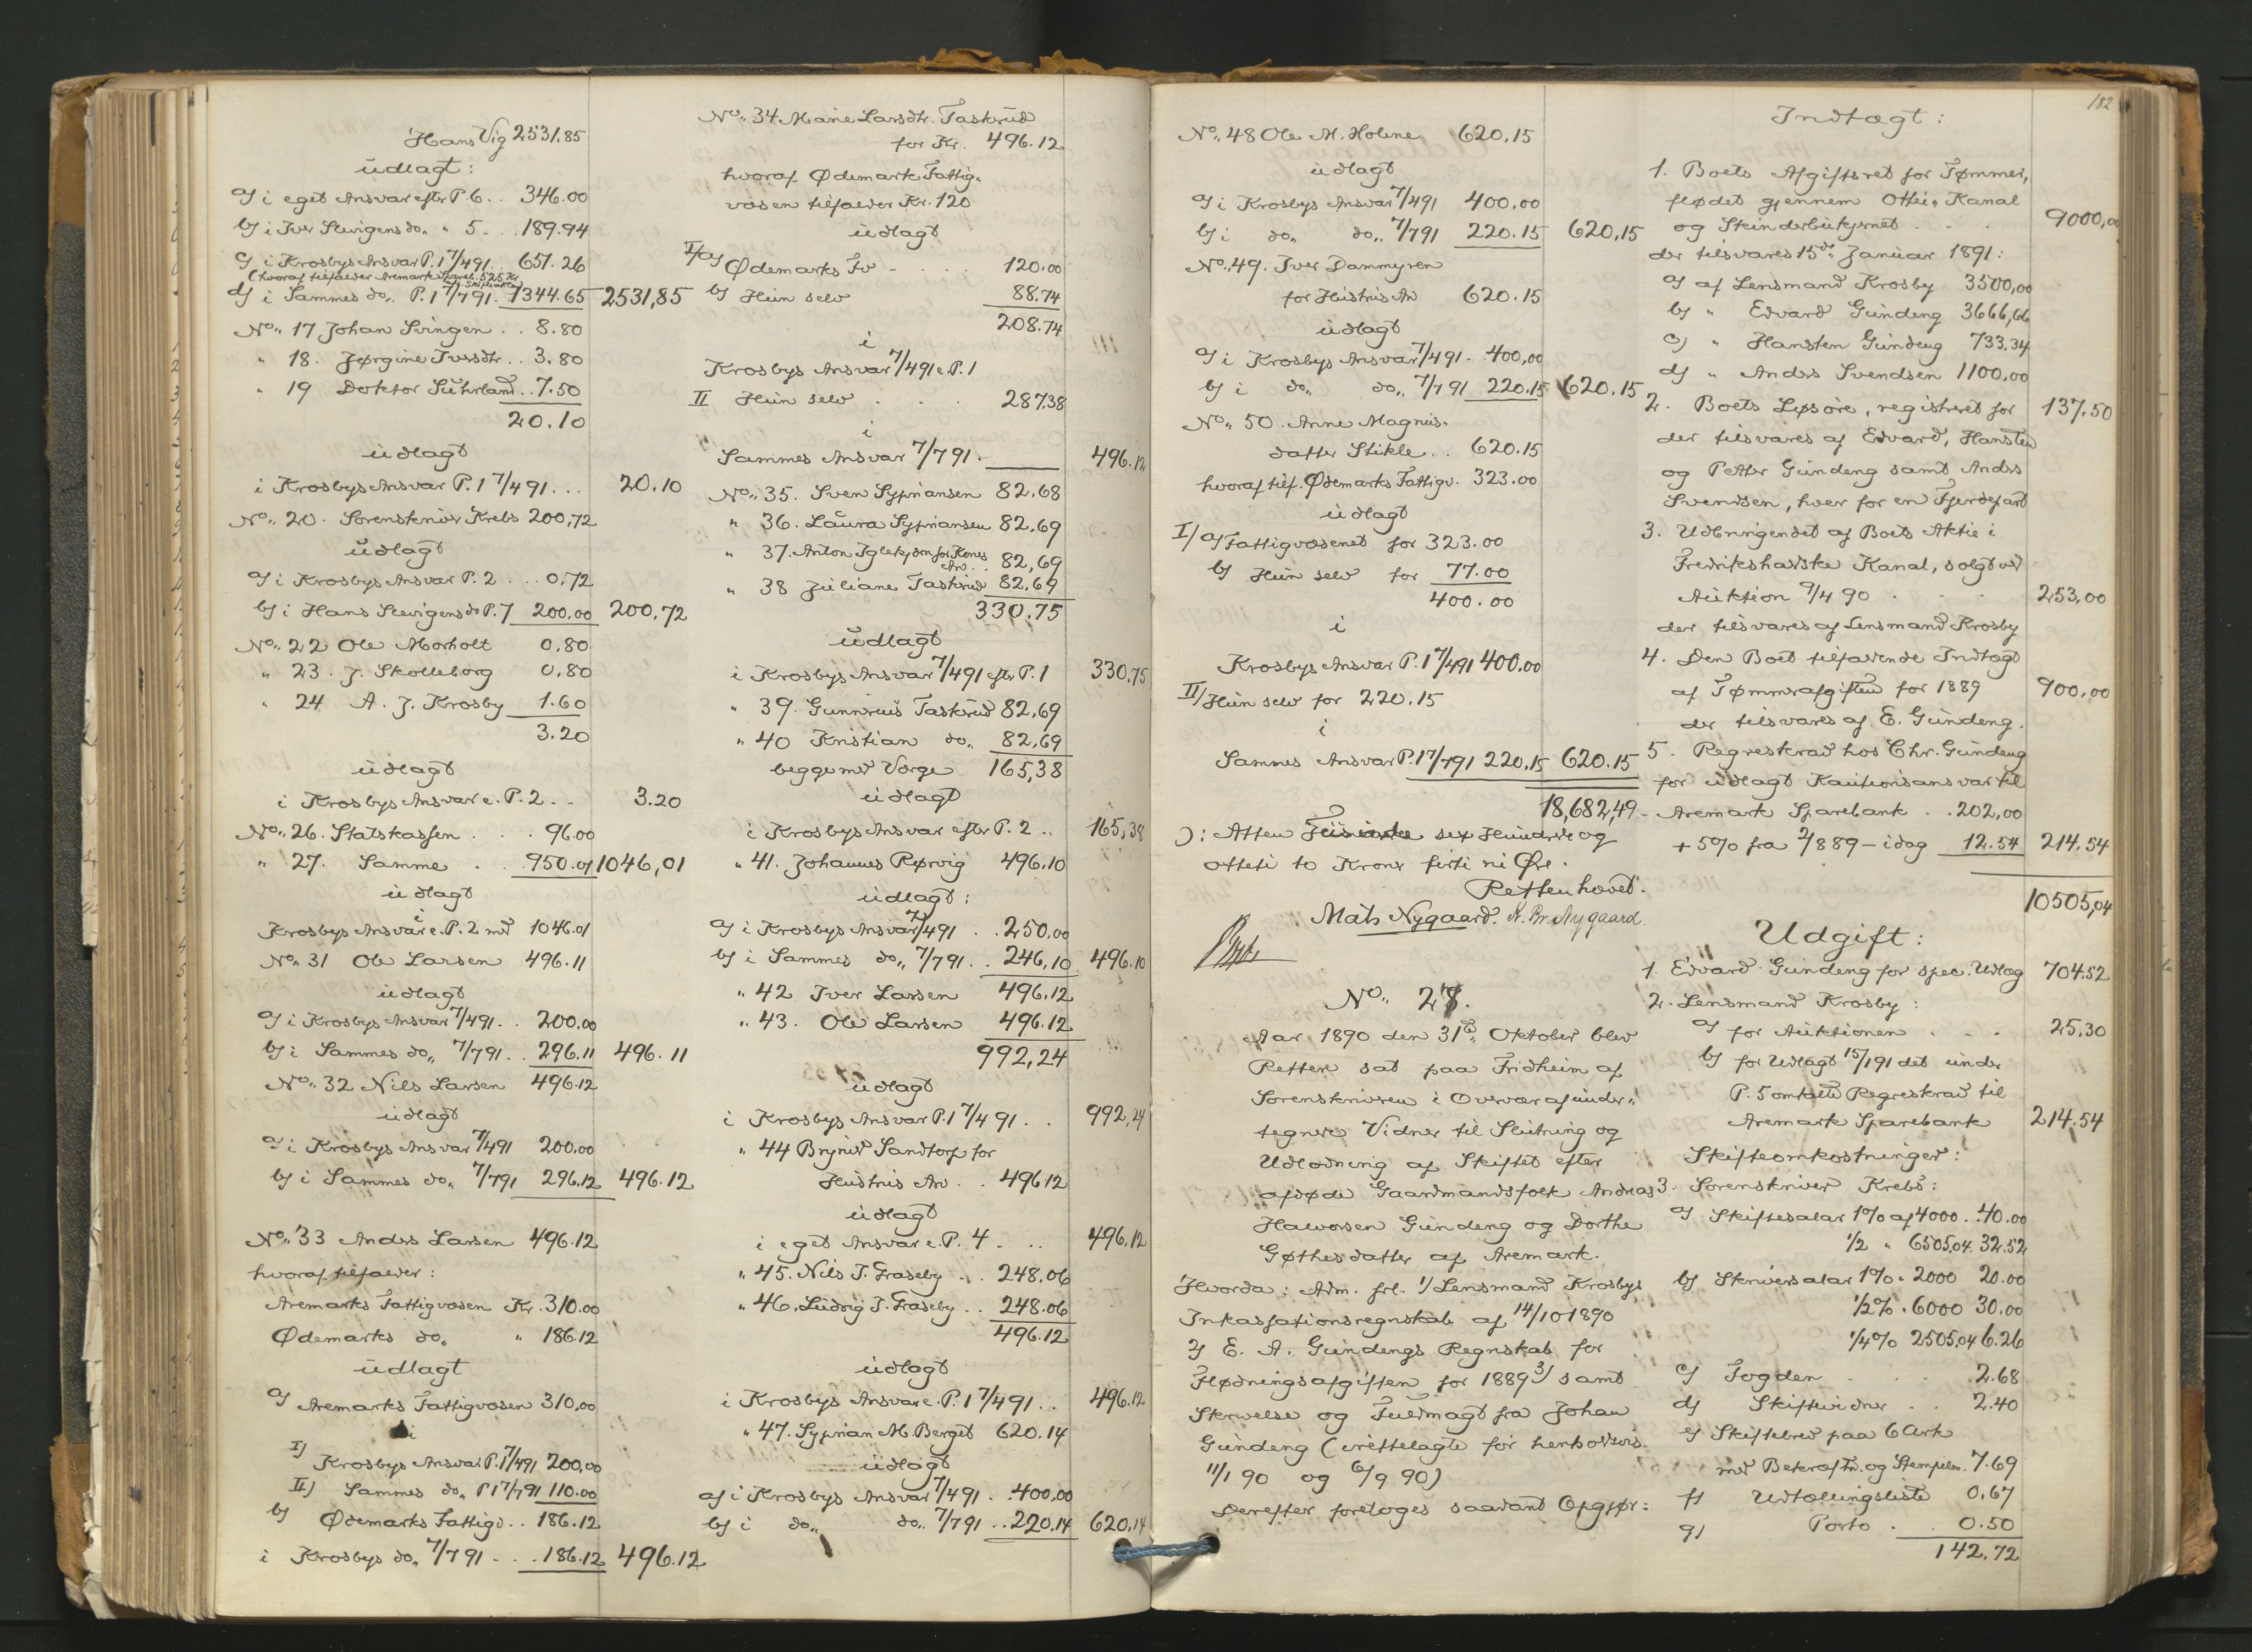 Hans Vig 2531.85
udlagt:
a) i eget Ansvar eftr P. 6 . . 346.00
b) i Iver Slevigens do. " 5 . . 189.94
c) i Krosbys Ansvar P. 1 7/4 91 . . 651.26
(hvoraf tilfalder Aremarks Spareb. 525 Kr
d) i Sammes do. P. 1 7/7 91. 1344.65 2531,85
No. 17 Johan Svingen . . 8.80
" 18. Jørgine Iversdtr . . 3.80
" 19 Doktor Suhrland . . 7.50
20.10
udlagt
i Krosbys Ansvar P. 1 7/4 91 . . . 20.10
No. 20. Sorenskriver Krebs 200,72
udlagt
a) i Krosbys Ansvar P. 2 . . . 0.72
b) i Hans Slevigens do P. 7 200,00 200,72
No. 22 Ole Morholt 0.80
" 23. J. Skolleborg 0.80
" 24 A. J. Krosby 1.60
3.20
udlagt
i Krosbys Ansvar e. P. 2 . . 3.20
No. 26. Statskassen . . . 96.00
" 27. Samme . . 950.01 1046,01
udlagt
i
Krosbys Ansvar e. P. 2 med 1046.01
No. 31 Ole Larsen 496.11
udlagt
a) i Krosbys Ansvar 7/4 91 . . 200.00
b) i Sammes do. 7/7 91 . . 296.11 496.11
No. 32 Nils Larsen 496.12
udlagt
a) i Krosbys Ansvar 7/4 91 200.00
b) i Sammes do. 7/7 91 296.12 496.12
No. 33 Anders Larsen 496.12
hvoraf tilfalder:
Aremarks Fattigvæsen Kr. 310.00
Ødemarks do. " 186.12
udlagt
a) Aremarks Fattigvæsen 310.00
i
I) Krosbys Ansvar P. 1 7/4 91 200,00
II) Sammes do. P 1 7/7 91 110.00
b) Ødemarks Fattigv. . 186.12
i Krosbys do. 7/7 91 . . . 186.12 496.12
No. 34 Marie Larsdtr. Taskrud
for Kr. 496.12
hvoraf Ødemark Fattig-
væsen tilfalder Kr. 120
udlagt
I/ a) Ødemarks Fv - . . 120.00
b) Hun selv 88.74
208.74
i
Krosbys Ansvar 7/4 91 e. P. 1
II Hun selv . . . 287.38
i
Sammes Ansvar 7/7 91 . 496.12
No. 35. Sven Sypriansen 82.68
" 36. Laura Sypriansen 82.69
" 37. Anton Iglekjærn for Kones
Arv . . 82,69
" 38 Juliane Taskrud 82.69
330.75
udlagt
i Krosbys Ansvar 7/4 91 eftr P. 1 330,75
" 39. Gunnerius Taskrud 82,69
" 40 Kristian do. 82.69
begge med Værge 165,38
udlagt
i Krosbys Ansvar eftr P. 2 . . 165,38
" 41. Johannes Rørvig 496.10
udlagt:
a) i Krosbys Ansvar 7/4 91 . . 250,00
b) i Sammes do. 7/7 91 . . 246,10 496.10
" 42 Iver Larsen 496.12
" 43. Ole Larsen 496.12
992,24
udlagt
i Krosbys Ansvar P. 1 7/4 91 . . 992,24
" 44 Brynild Sandtorp for
Hustrus Arv . . 496.12
udlagt
i eget Ansvar e. P. 4 . . . 496,12
" 45. Nils J. Fraseby . . . 248.06
" 46. Ludvig J. Fraseby . . 248.06
496.12
udlagt
i Krosbys Ansvar e. P. 1 7/4 91 . . 496.12
" 47. Syprian M. Berget 620.14
udlagt
a) i Krosbys Ansvar 7/4 91 . . 400,00
b) i do. do. 7/7 91 . . 220.14 620,14
182
No. 48 Ole M. Holene 620.15
udlagt
a) i Krosbys Ansvar 7/4 91 400.00
b) i do. do. 7/7 91 220.15 620,15
No. 49. Iver Dammyren
for Hustrus Arv 620.15
udlagt
a) i Krosbys Ansvar 7/4 91 . 400,00
b) i do. do. 7/7 91 220.15 620.15
No. 50. Anne Magnus-
datter Stikle . . 620.15
hvoraf tilf. Ødemarks Fattigv. 323.00
udlagt
I/ a) Fattigvæsenet for 323.00
b) Hun selv for 77.00
400.00
i
Krosbys Ansvar P. 1 7/4 91 400.00
II/ Hun selv for 220.15
i
Sammes Ansvar P. 1 7/7 91 220.15 620.15
18,682,49
): Atten Tusinde sex Hundrede og
otteti to Kroner firti ni Øre.
Retten hævet.
Mats Nygaard. K. Br. Nygaard.
No. 28.
Aar 1890 den 31te Oktober blev
Retten sat paa Fridheim af
Sorenskriveren i Overvær af under-
tegnede Vidner til Slutning og
Udlodning af Skiftet efter
afdøde Gaardmandsfolk Andreas
Halvorsen Gundeng og Dorthe
Gøthesdatter af Aremark.
Hvorda: Adm. frl. 1/ Lensmand Krosbys
Inkassationsregnskab af 14/10 1890
2/ E. A. Gundengs Regnskab for
Flødningsafgiften for 1889 3/ samt
Skrivelse og Fuldmagt fra Johan
Gundeng (irettelagte før henholdsvis
11/1 90 og 6/9 90)
Derefter foretoges saadant Opgjør:
Indtægt:
1. Boets Afgiftsret for Tømmer,
flødet gjennem Otteie Kanal
og Steinderbukjernet . . . 9000,00
der tilsvares 15de Januar 1891:
a) af Lensmand Krosby 3500,00
b) " Edvard Gundeng 3666,66
c) " Hansten Gundeng 733,34
d) " Anders Svendsen 1100,00
2. Boets Løsøre, registreret for 137.50
der tilsvares af Edvard, Hansten
og Petter Gundeng samt Anders
Svendsen, hver for en Fjerdepart
3. Udbringendet af Boets Aktie i
Fredrikshaldske Kanal, solgt ved
Auktion 9/4 90 . . . 253,00
der tilsvares af Lensmand Krosby
4. Den Boet tilfaldende Indtægt
af Tømmerafgiften for 1889 900,00
der tilsvares af E. Gundeng.
5. Regreskrav hos Chr. Gundeng
for udlagt Kautionsansvar til
Aremark Sparebank . . 202,00
+ 5% fra 2/8 89 – idag 12.54 214.54
10505,04
Udgift:
1. Edvard Gundeng for spec. Udlæg 704.52
2. Lensmand Krosby:
a) for Auktionen . . . 25.30
b) for Udlagt 15/1 91 det under
P. 5 omtalte Regreskrav til
Aremark Sparebank 214.54
Skifteomkostninger:
3. Sorenskriver Krebs:
a) Skiftesalar 1% af 4000 . . 40.00
1/2 " 6505,04. 32.52
b) Skriversalar 1% . 2000 20.00
1/2% . 6000 30.00
1/4% 2505,04 6.26
c) Fogden . . . 2.68
d) Skiftevidner . . 2.40
e) Skiftebrev paa 6 Ark
med Bekræftn. og Stempelm. 7.69
f) Udtællingsliste 0,67
g) Porto . . 0.50
142.72